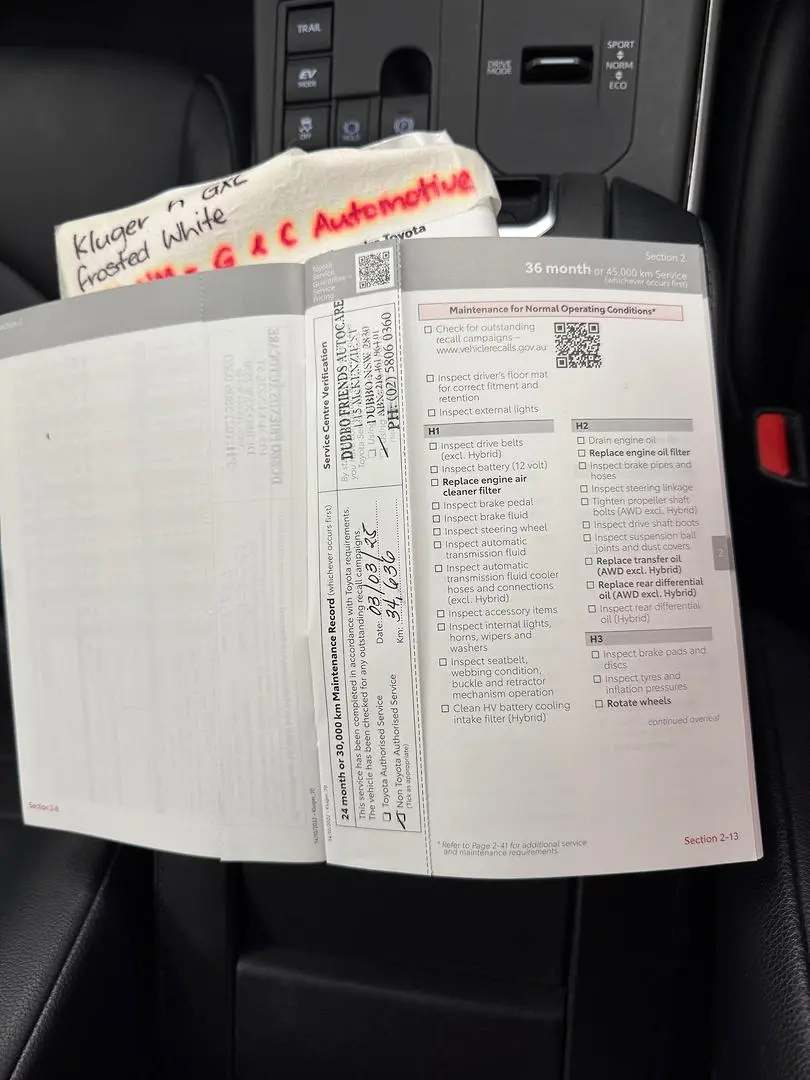 TRAIL
EV
MODE
OFF
HOLD
DRIVE
MODE
SPORT
NORM
ECO
Kluger n GXL
frosted White
G & C Automotive
Toyota
Toyota
Service
Guarantee
Service
Pricing
Service Centre Verification
DUBBO FRIENDS AUTOCARE
DUBBO NSW 2830
PH: (02) 5806 0360
24 month or 30,000 km Maintenance Record (whichever occurs first)
This service has been completed in accordance with Toyota requirements.
The vehicle has been checked for any outstanding recall campaigns.
Toyota Authorised Service
Non Toyota Authorised Service
(Tick as appropriate)
Date: 03/03/25
Km: 34,636
Section 2
36 month or 45,000 km Service
(whichever occurs first)
Maintenance for Normal Operating Conditions*
Check for outstanding
recall campaigns –
www.vehiclerecalls.gov.au
Inspect driver's floor mat
for correct fitment and
retention
Inspect external lights
H1
Inspect drive belts
(excl. Hybrid)
Inspect battery (12 volt)
Replace engine air
cleaner filter
Inspect brake pedal
Inspect brake fluid
Inspect steering wheel
Inspect automatic
transmission fluid
Inspect automatic
transmission fluid cooler
hoses and connections
(excl. Hybrid)
Inspect accessory items
Inspect internal lights,
horns, wipers and
washers
Inspect seatbelt,
webbing condition,
buckle and retractor
mechanism operation
Clean HV battery cooling
intake filter (Hybrid)
H2
Drain engine oil
Replace engine oil filter
Inspect brake pipes and
hoses
Inspect steering linkage
Tighten propeller shaft
bolts (AWD excl. Hybrid)
Inspect drive shaft boots
Inspect suspension ball
joints and dust covers
Replace transfer oil
(AWD excl. Hybrid)
Replace rear differential
oil (AWD excl. Hybrid)
Inspect rear differential
oil (Hybrid)
H3
Inspect brake pads and
discs
Inspect tyres and
inflation pressures
Rotate wheels
continued overleaf
2
* Refer to Page 2-41 for additional service
and maintenance requirements
Section 2-13